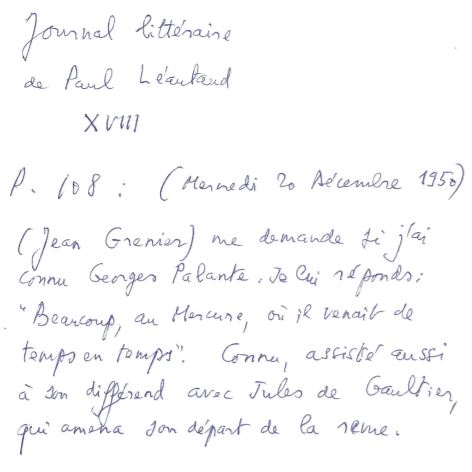 Journal littéraire
de Paul Léautaud
XVIII
P. 108 : (Mercredi 20 Décembre 1950)
(Jean Grenier) me demande si j'ai
connu Georges Palante. Je lui réponds :
"Beaucoup, au Mercure, où il venait de
temps en temps". Connu, assisté aussi
à son différend avec Jules de Gaultier,
qui amena son départ de la revue.